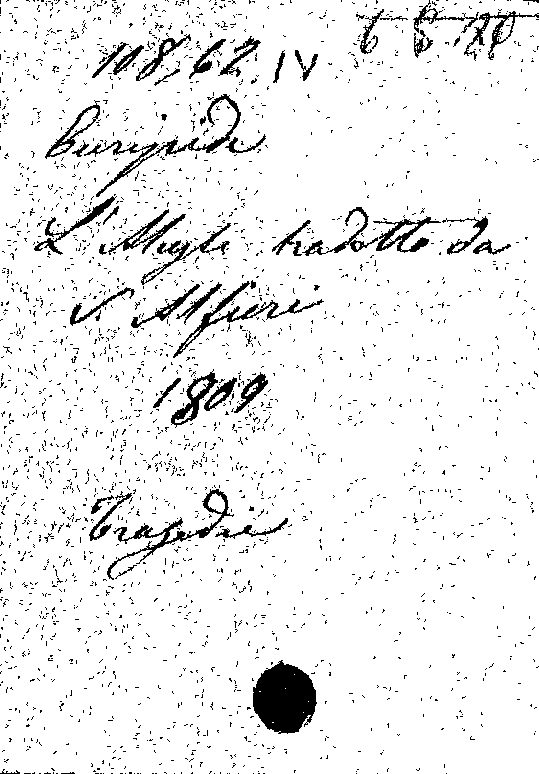 108,62 IV
Euripide
L'Alceste tradotta da
V Alfieri
1809
Tragedie